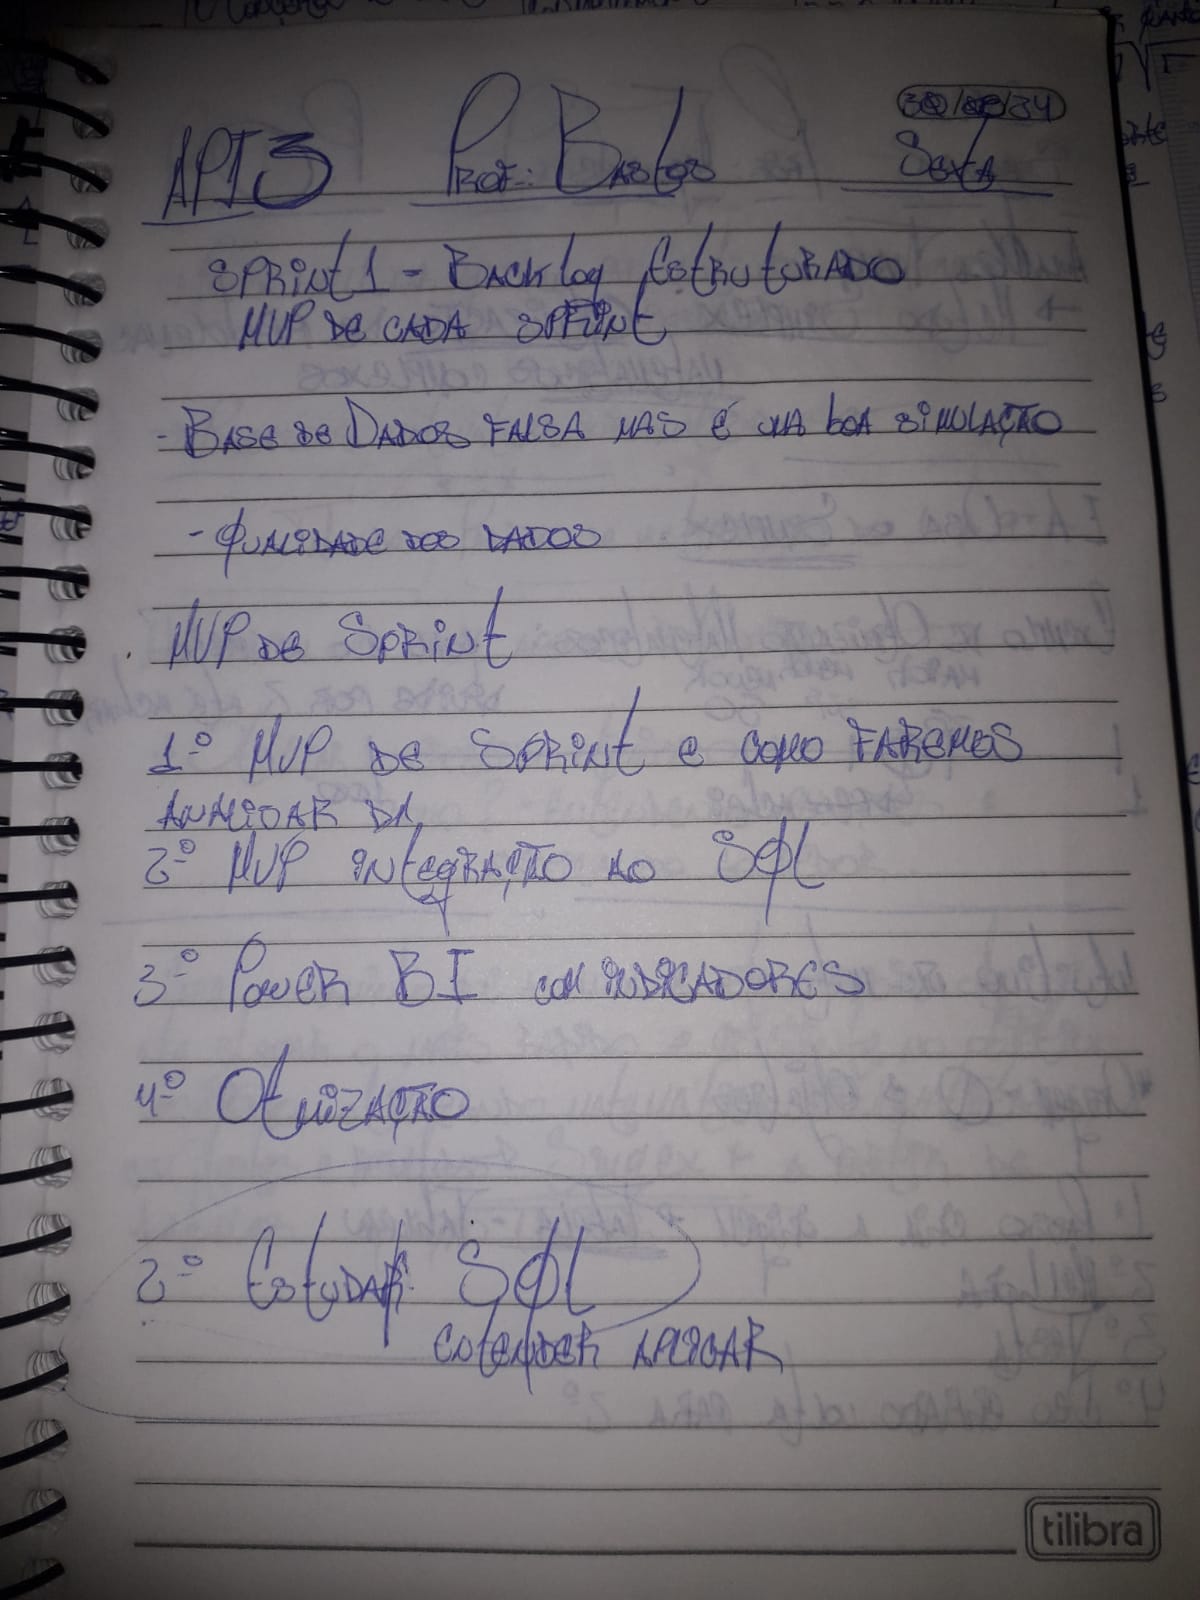 API 3 Prof: Bastos 30/08/24
Sexta
Sprint 1 - Backlog Estruturado
MVP de cada Sprint
- Base de Dados falsa mas é uma boa simulação
- Qualidade dos dados
MVP de Sprint
1º MVP de Sprint e como faremos
analisar da
2º MVP integração ao SQL
3º Power BI com indicadores
4º Otmização
2º Estudar SQL
entender aplicar
tilibra